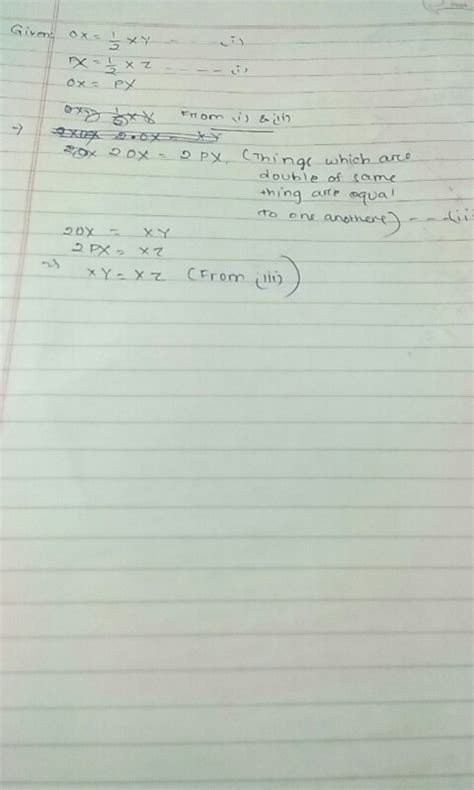 Given: OX = 1/2 XY - - - - - (i)
PX = 1/2 XZ - - - - - (i)
OX = PX
From (i) & (ii)
⇒ 2×OX 2·OX = XY
2OX 2OX = 2PX. (Things which are
double of same
thing are equal
to one anothere) - - - (iii
2OX = XY
2PX = XZ
⇒ XY = XZ (From (iii))